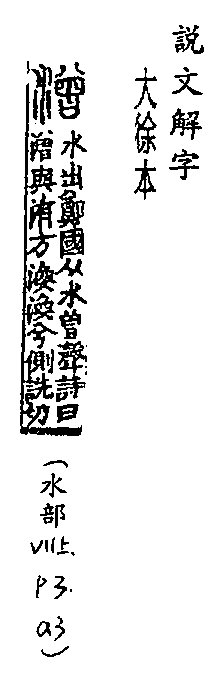 説文解字
大徐本
潧 水出鄭國从水曾聲詩曰
潧與洧方渙渙兮側詵切
(水部
VII上.
P3.
a3)